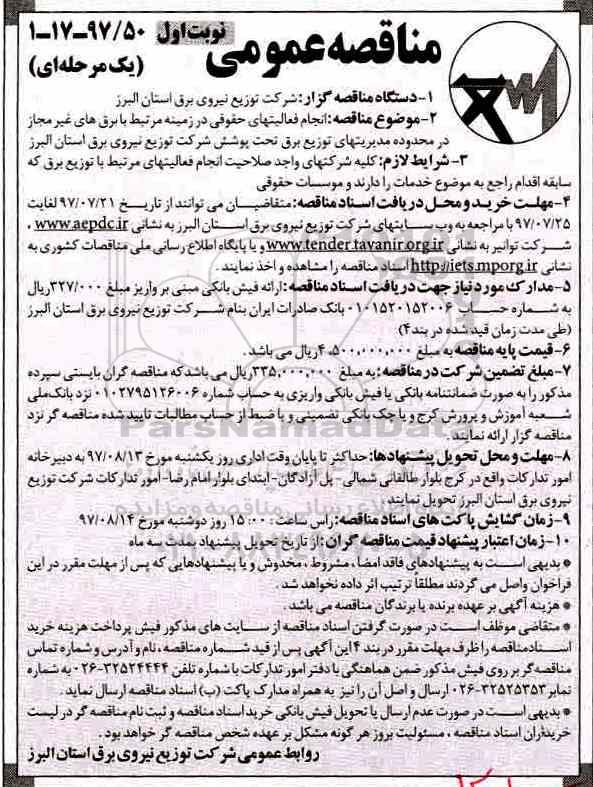 مناقصه عمومی
نوبت اول ۹۷/۵۰-۱۷-۱
(یک مرحله‌ای)
۱-دستگاه مناقصه گزار: شرکت توزیع نیروی برق استان البرز
۲-موضوع مناقصه: انجام فعالیتهای حقوقی در زمینه مرتبط با برق های غیر مجاز
در محدوده مدیریتهای توزیع برق تحت پوشش شرکت توزیع نیروی برق استان البرز
۳- شرایط لازم: کلیه شرکتهای واجد صلاحیت انجام فعالیتهای مرتبط با توزیع برق که
سابقه اقدام راجع به موضوع خدمات را دارند و موسسات حقوقی
۴-مهلت خرید و محل دریافت اسناد مناقصه: متقاضیان می توانند از تاریخ ۹۷/۰۷/۲۱ لغایت
۹۷/۰۷/۲۵ با مراجعه به وب سایتهای شرکت توزیع نیروی برق استان البرز به نشانی www.aepdc.ir ،
شرکت توانیر به نشانی www.tender.tavanir.org.ir و یا پایگاه اطلاع رسانی ملی مناقصات کشوری به
نشانی http://iets.mporg.ir اسناد مناقصه را مشاهده و اخذ نمایند .
۵-مدارک مورد نیاز جهت دریافت اسناد مناقصه: ارائه فیش بانکی مبنی بر واریز مبلغ ۳۲۷/۰۰۰ریال
به شماره حساب ۰۱۰۱۵۲۰۱۵۲۰۰۶ بانک صادرات ایران بنام شرکت توزیع نیروی برق استان البرز
(طی مدت زمان قید شده در بند۴)
۶-قیمت پایه مناقصه به مبلغ ۴،۵۰۰،۰۰۰،۰۰۰ریال می باشد .
۷-مبلغ تضمین شرکت در مناقصه: به مبلغ ۳۳۵،۰۰۰،۰۰۰ریال می باشد که مناقصه گران بایستی سپرده
مذکور را به صورت ضمانتنامه بانکی یا فیش بانکی واریزی به حساب شماره ۰۱۰۲۷۹۵۱۲۶۰۰۶ نزد بانک ملی
شعبه آموزش و پرورش کرج و یا چک بانکی تضمینی و یا ضبط از حساب مطالبات تایید شده مناقصه گر نزد
مناقصه گزار ارائه نمایند .
۸-مهلت و محل تحویل پیشنهادها: حداکثر تا پایان وقت اداری روز یکشنبه مورخ ۹۷/۰۸/۱۳ به دبیرخانه
امور تدارکات واقع در کرج بلوار طالقانی شمالی- پل آزادگان- ابتدای بلوار امام رضا- امور تدارکات شرکت توزیع
نیروی برق استان البرز تحویل نمایند .
۹-زمان گشایش پاکت های اسناد مناقصه: راس ساعت : ۱۵:۰۰ روز دوشنبه مورخ ۹۷/۰۸/۱۴
۱۰-زمان اعتبار پیشنهاد قیمت مناقصه گران : از تاریخ تحویل پیشنهاد مدت سه ماه
* بدیهی است به پیشنهادهای فاقد امضا ، مشروط ، مخدوش و یا پیشنهادهایی که پس از مهلت مقرر در این
فراخوان واصل می گردند مطلقا ترتیب اثر داده نخواهد شد .
* هزینه آگهی بر عهده برنده یا برندگان مناقصه می باشد .
* متقاضی موظف است در صورت گرفتن اسناد مناقصه از سایت های مذکور فیش پرداخت هزینه خرید
اسناد مناقصه را ظرف مهلت مقرر در بند ۴ این آگهی پس از قید شماره مناقصه ، نام و آدرس و شماره تماس
مناقصه گر بر روی فیش مذکور ضمن هماهنگی با دفتر امور تدارکات با شماره تلفن ۳۲۵۲۴۴۴۴-۰۲۶ به شماره
نمابر ۳۲۵۲۵۳۵۳-۰۲۶ ارسال و اصل آن را نیز به همراه مدارک پاکت (ب) اسناد مناقصه ارسال نماید .
* بدیهی است در صورت عدم ارسال یا تحویل فیش بانکی خرید اسناد مناقصه و ثبت نام مناقصه گر در لیست
خریداران اسناد مناقصه ، مسئولیت بروز هر گونه مشکل بر عهده شخص مناقصه گر خواهد بود .
روابط عمومی شرکت توزیع نیروی برق استان البرز
ParsNamadData